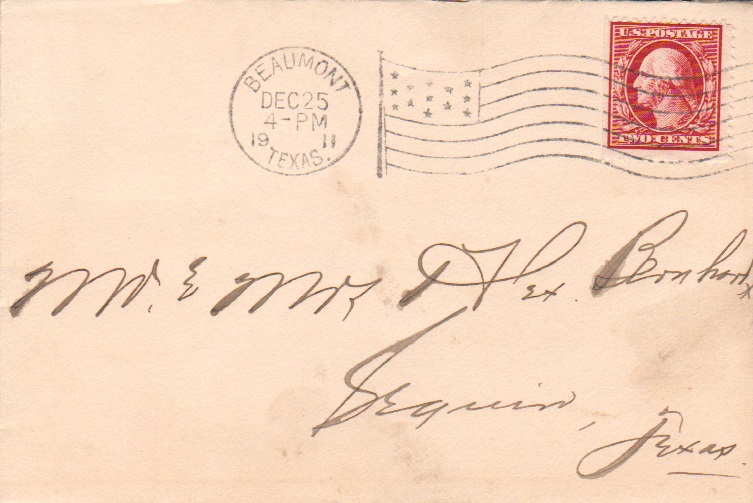 BEAUMONT
DEC 25
4-PM
19 11
TEXAS.
U.S. POSTAGE
TWO CENTS
Mr. & Mrs Alex. Bernhard
Seguin,
Texas.